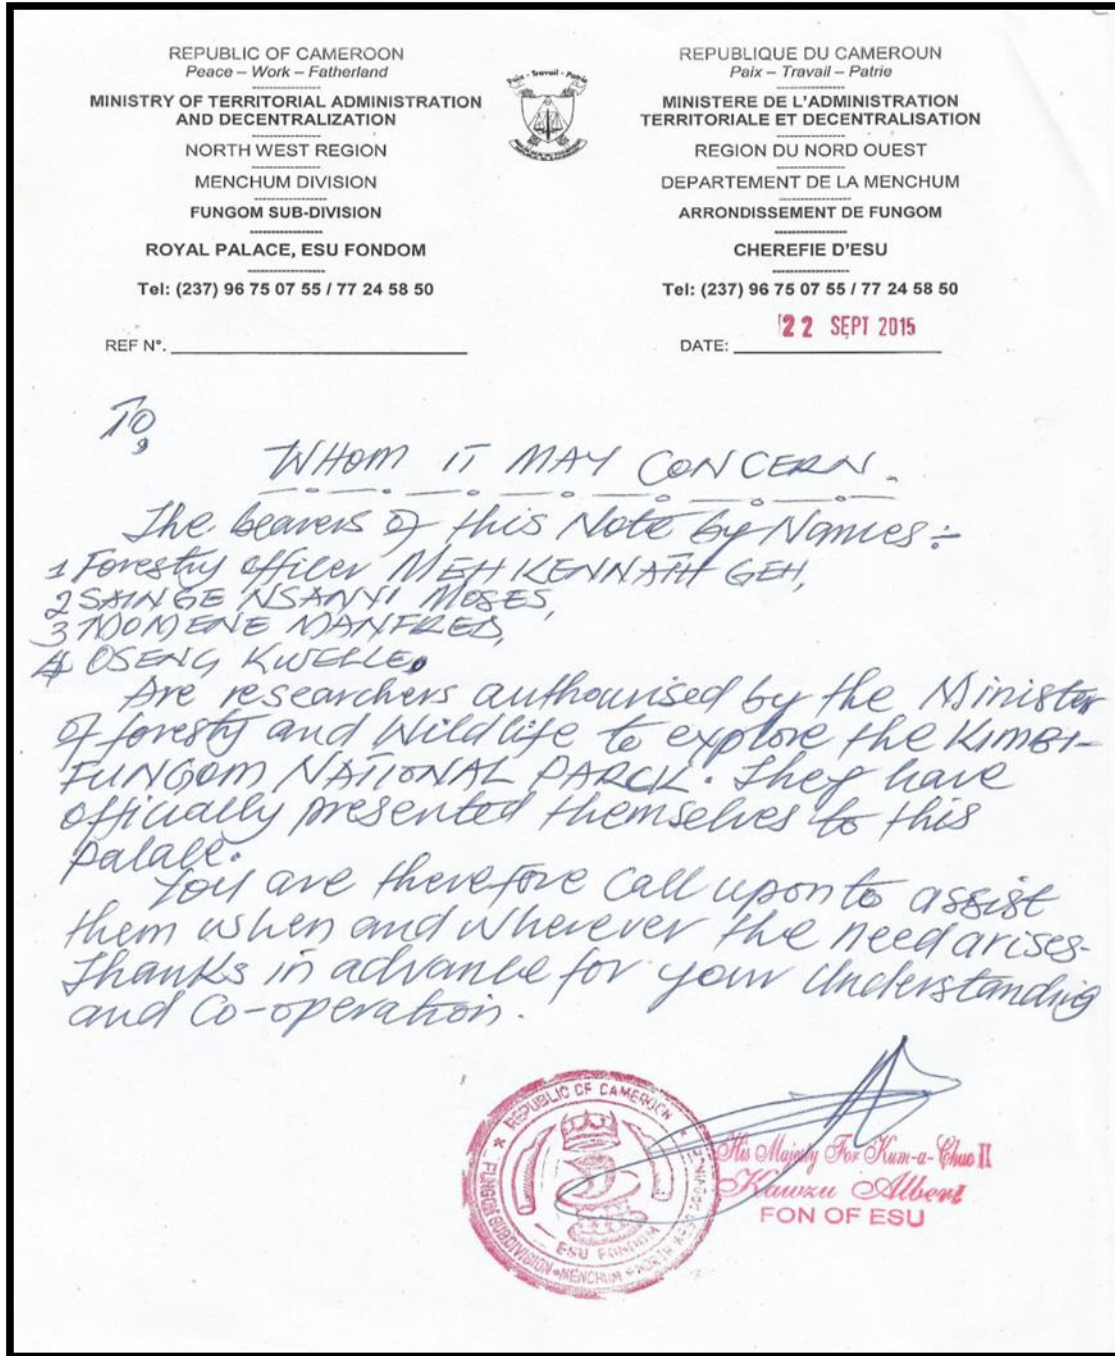 REPUBLIC OF CAMEROON
Peace – Work – Fatherland
MINISTRY OF TERRITORIAL ADMINISTRATION
AND DECENTRALIZATION
NORTH WEST REGION
MENCHUM DIVISION
FUNGOM SUB-DIVISION
ROYAL PALACE, ESU FONDOM
Tel: (237) 96 75 07 55 / 77 24 58 50
REF N°.
Paix - Travail - Patrie
REPUBLIQUE DU CAMEROUN
Paix – Travail – Patrie
MINISTERE DE L'ADMINISTRATION
TERRITORIALE ET DECENTRALISATION
REGION DU NORD OUEST
DEPARTEMENT DE LA MENCHUM
ARRONDISSEMENT DE FUNGOM
CHEREFIE D'ESU
Tel: (237) 96 75 07 55 / 77 24 58 50
DATE: 22 SEPT 2015
TO,
WHOM IT MAY CONCERN.
The bearers of this Note by Names:-
1 Forestry officer MEH KENNATH GEH,
2 SAINGE NSANYI MOSES,
3 NDOMENE MANFRED,
4 OSENG KWELLE.
Are researchers authourised by the Minister
of foresty and Wildlife to explore the KIMBI-
FUNGOM NATIONAL PARCK. They have
officially presented themselves to this
palace.
You are therefore call upon to assist
them when and wherever the need arises-
Thanks in advance for your Understanding
and Co-operation.
REPUBLIC OF CAMEROON
ESU FONDOM
FUNGOM SUBDIVISION MENCHUM NORTH WEST PROVINCE
His Majesty For Kum-a-Chuo II
Kawzu Albert
FON OF ESU